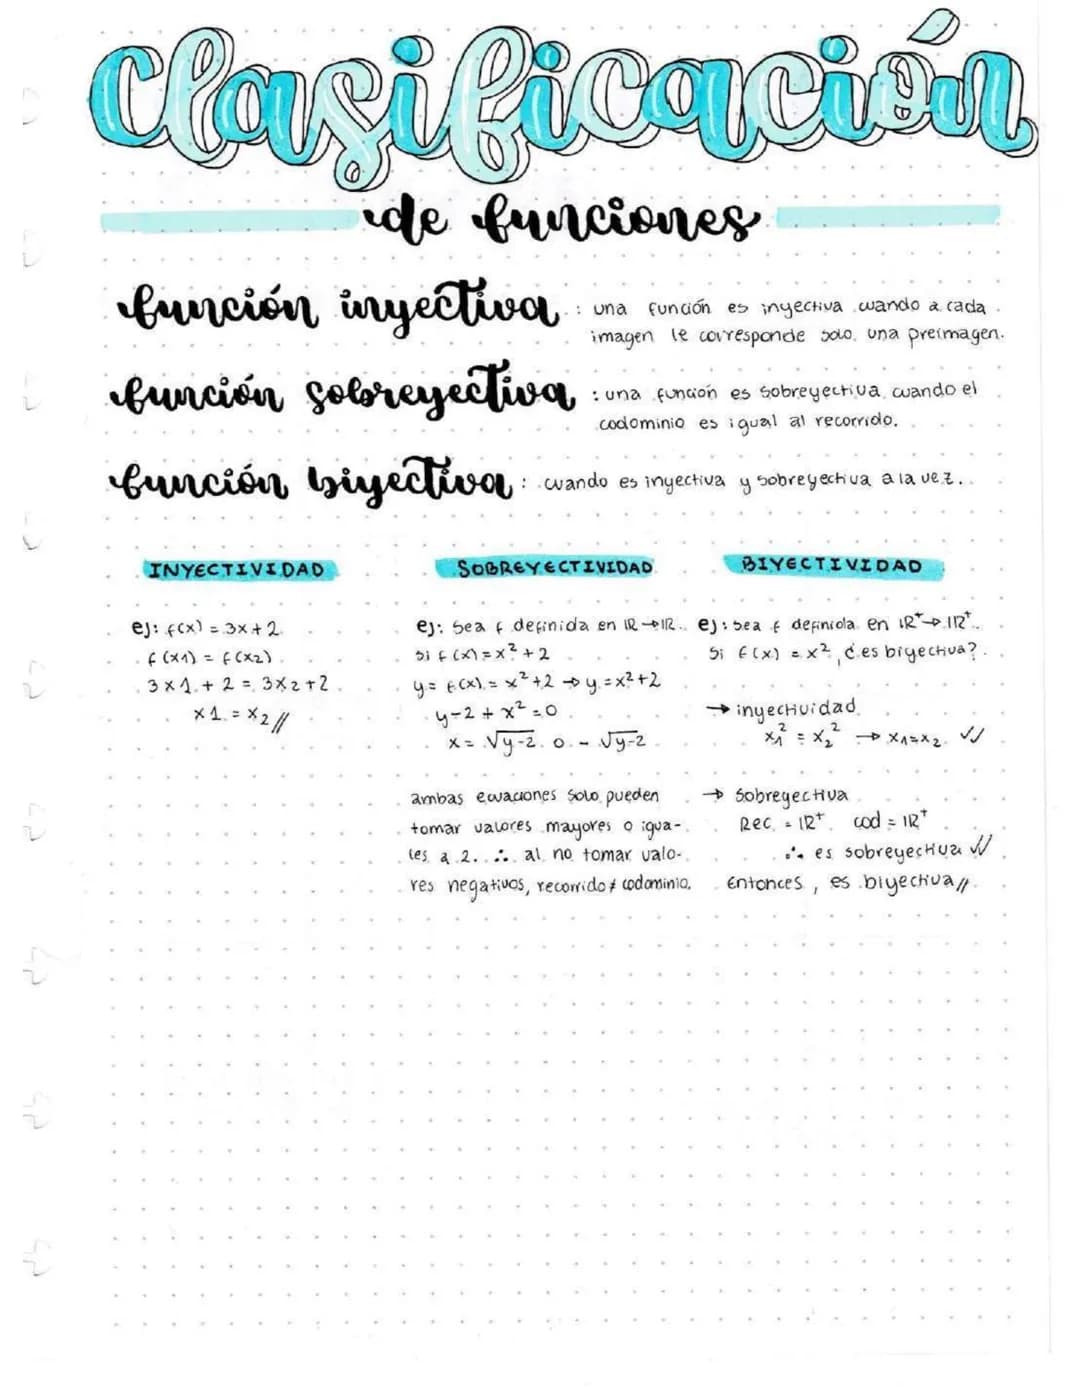 Clasificación
de funciones
función inyectiva : una función es inyectiva cuando a cada
imagen le corresponde solo una preimagen.
función sobreyectiva : una función es sobreyectiva cuando el
codominio es igual al recorrido.
función biyectiva : cuando es inyectiva y sobreyectiva a la vez.
INYECTIVIDAD
ej: f(x) = 3x + 2
f(x1) = f(x2)
3x1 + 2 = 3x2 + 2
x1 = x2 //
SOBREYECTIVIDAD
ej: Sea f definida en IR → IR.
Si f(x) = x² + 2
y = f(x) = x² + 2 → y = x² + 2
y - 2 + x² = 0
x = √y-2 o - √y-2
ambas ecuaciones solo pueden
tomar valores mayores o igua-
les a 2. ∴ al no tomar valo-
res negativos, recorrido ≠ codominio.
BIYECTIVIDAD
ej: Sea f definida en IR⁺ → IR⁺.
Si f(x) = x², ¿es biyectiva?
→ inyectividad
x₁² = x₂² → x₁ = x₂ ✓✓
→ Sobreyectiva
Rec. = IR⁺ cod = IR⁺
∴ es sobreyectiva ✓✓
Entonces, es biyectiva //